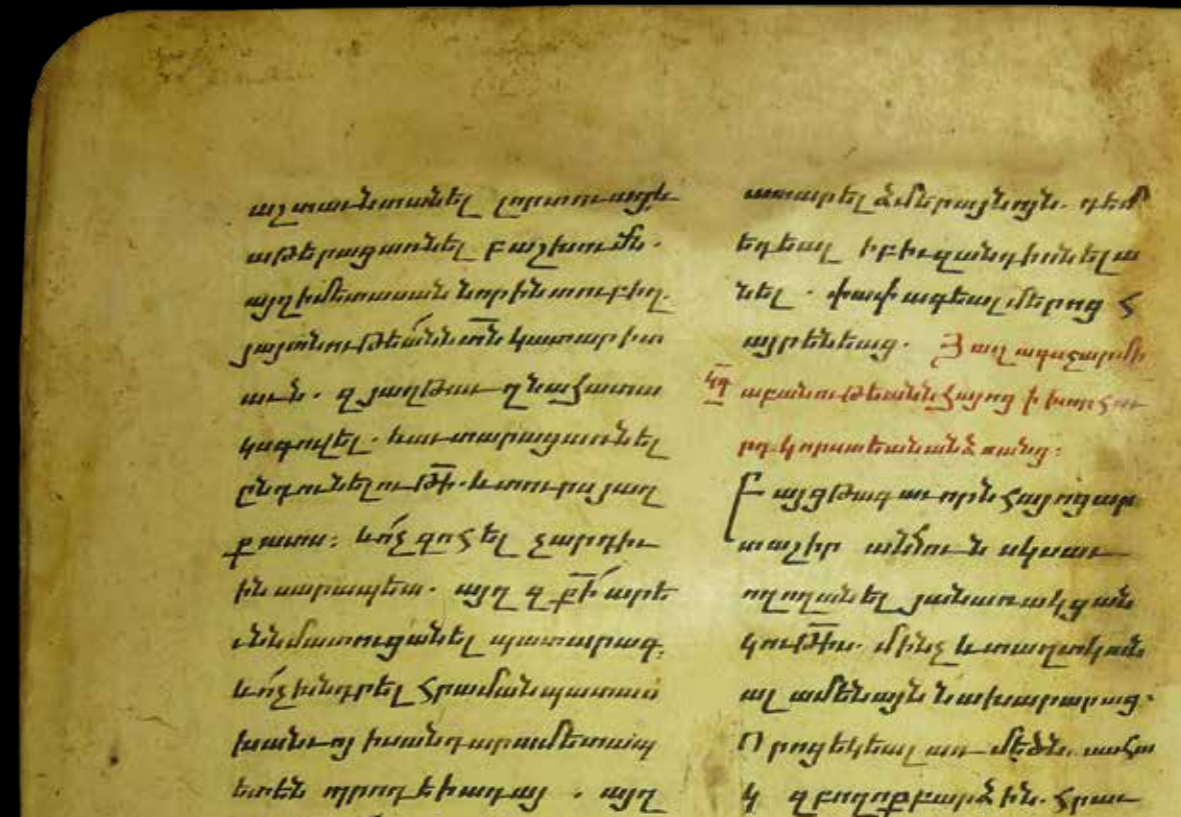 աշտաւնտանել չորտուացե
աթերացառնել բաշխումն.
այղ իմետասան նորին տուբիղ.
յայտնութեանն տն կատարի տ
աւն. զյաղթաւ ղնահատա
կագովել. եւաւտարացառնել
ընդունելութի. եւ տուրս յաղ
քատս: եւոչ զոհել չարդիւ
ին սարապեա. այղ զքի արե
ւննմատուցանել պատարագ.
եւոչ խնդրել հրաման պատաս
խանւոյ իսանդարամետապ
ետեն պրոդեիադայ. այղ
ատարել ձմերայնոյն. դեմ
եդեալ իբիւզանդիոնելա
նել. փափագեալ մերոց հ
այրենեաց. Յաղագսչարմի
ԿԳ աբանութեաննհայոց ի խորհու
րդ կորստեանանձանց:
Բայցթագաւորն հայոցար
տաշիր անհուն սկսաւ
ողողանել յանառակցան
կութիս. մինչ և տաղտկան
ալ ամենայն նախարարաց.
Որոցեկեալ առ մեծն. սահա
կ զբողոքբարձին. հրաւ